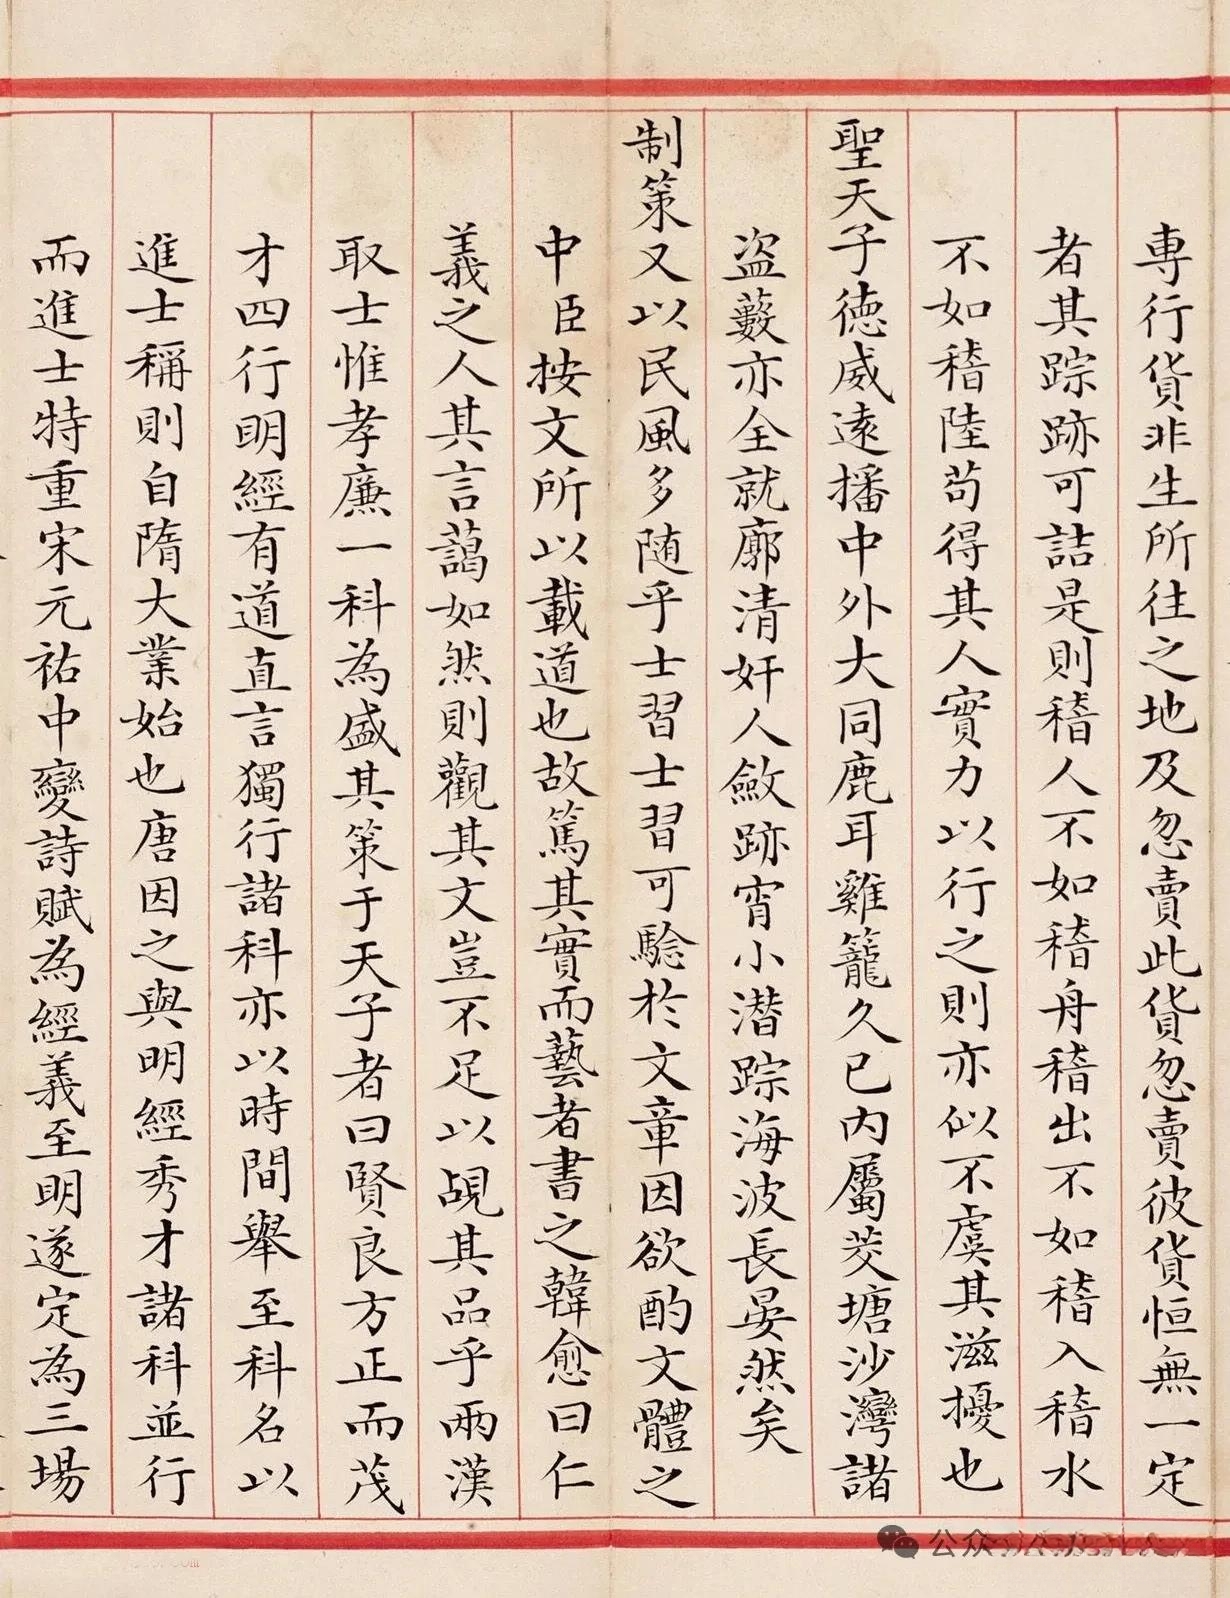 專行貨非生所往之地及忽賣此貨忽賣彼貨恒無一定
者其踪跡可詰是則稽人不如稽舟稽出不如稽入稽水
不如稽陸苟得其人實力以行之則亦似不虞其滋擾也
聖天子德威遠播中外大同鹿耳雞籠久已內屬茭塘沙灣諸
盜藪亦全就廓清奸人斂跡宵小潛踪海波長晏然矣
制策又以民風多随乎士習士習可驗於文章因欲酌文體之
中臣按文所以載道也故篤其實而藝者書之韓愈曰仁
義之人其言藹如然則觀其文豈不足以覘其品乎兩漢
取士惟孝廉一科為盛其策于天子者曰賢良方正而茂
才四行明經有道直言獨行諸科亦以時間舉至科名以
進士稱則自隋大業始也唐因之與明經秀才諸科並行
而進士特重宋元祐中變詩賦為經義至明遂定為三場
公众